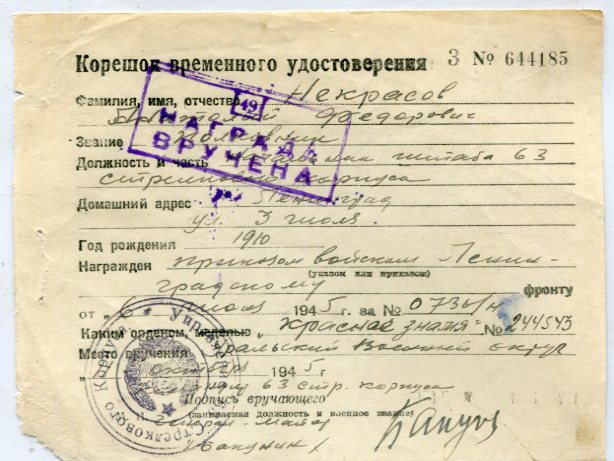 Корешок временного удостоверения З № 644185
Фамилия, имя, отчество Некрасов
Анатолий Федорович
49
НАГРАДА
ВРУЧЕНА
Звание Полковник
Должность и часть Начальник штаба 63
стрелкового корпуса
Домашний адрес Ленинград
ул. 3 июля
Год рождения 1910
Награжден приказом войскам Ленин-
(указом или приказом)
градскому фронту
от „6 июня 1945 г. за № 0736/н
Каким орденом, медалью „Красное знамя" № 244543
Место вручения Уральский Военный округ
„ октября 1945 г.
63 стр. корпуса
Подпись вручающего
(занимаемая должность и военное звание)
Генерал-Майор
/Бакунин/
Управление
Стрелкового Корпуса